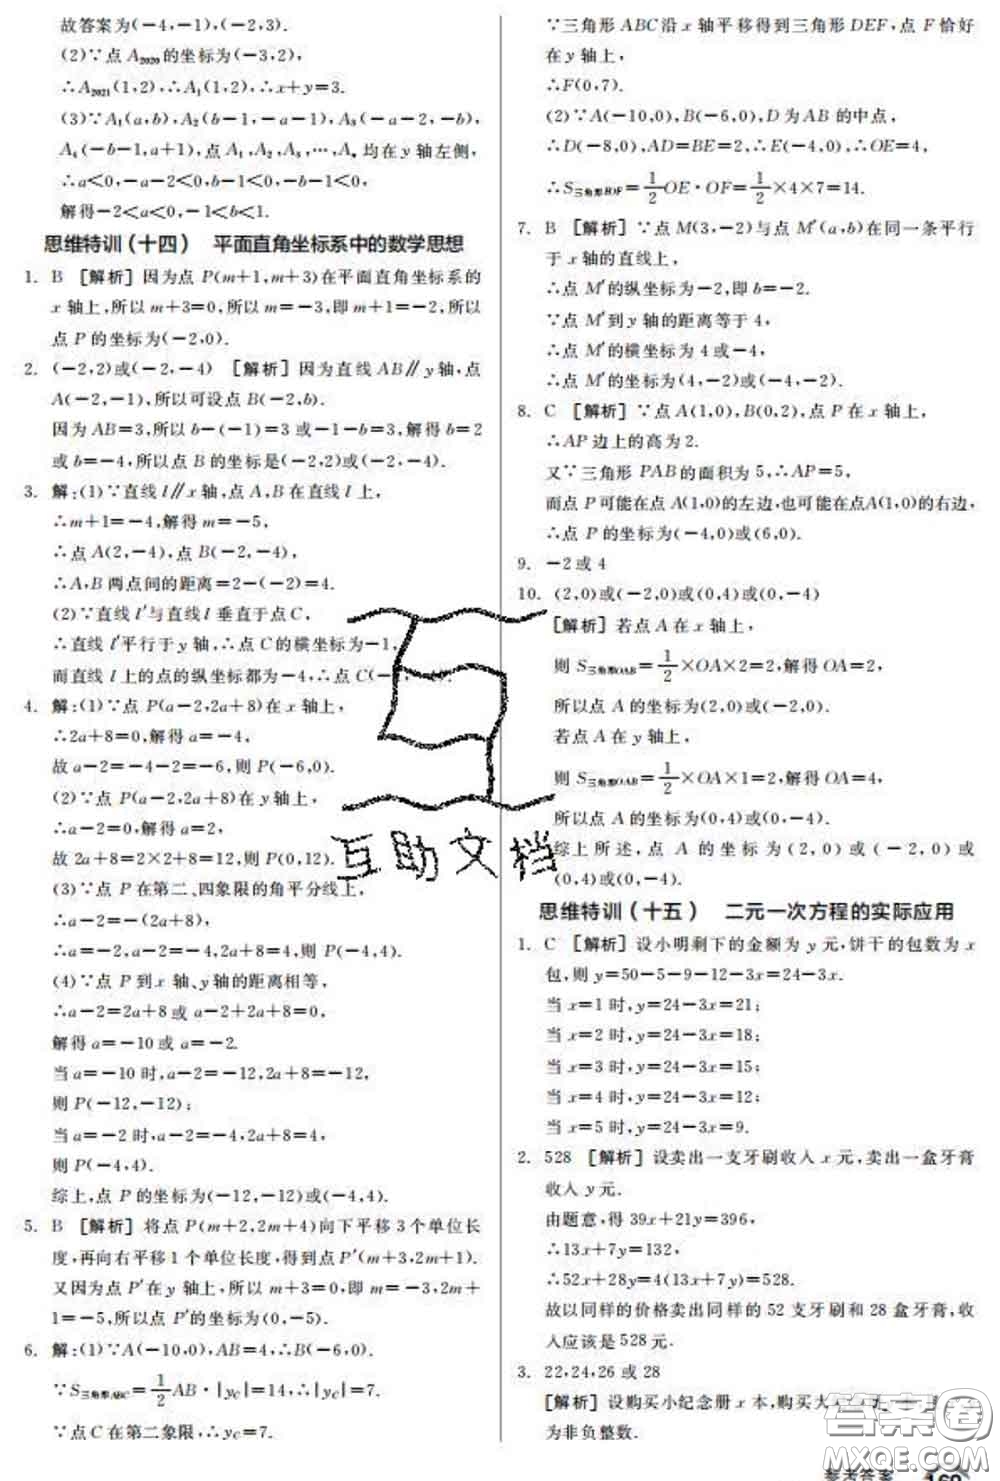 故答案为(-4,-1),(-2,3).
(2)∵点 A₂₀₂₀的坐标为(-3,2),
∴A₂₀₂₁(1,2),∴A₁(1,2),∴x+y=3.
(3)∵A₁(a,b),A₂(b-1,-a-1),A₃(-a-2,-b),
A₄(-b-1,a+1),点 A₁,A₂,A₃,…,Aₙ均在y轴左侧,
∴a<0,-a-2<0,b-1<0,-b-1<0,
解得-2<a<0,-1<b<1.
思维特训(十四) 平面直角坐标系中的数学思想
1. B [解析]因为点 P(m+1,m+3)在平面直角坐标系的
x 轴上,所以 m+3=0,所以m=-3,即 m+1=-2,所以
点 P 的坐标为(-2,0).
2. (-2,2)或(-2,-4) [解析]因为直线 AB∥y轴,点
A(-2,-1),所以可设点 B(-2,b).
因为 AB=3,所以 b-(-1)=3 或-1-b=3,解得 b=2
或 b=-4,所以点 B 的坐标是(-2,2)或(-2,-4).
3. 解:(1)∵直线 l∥x轴,点 A,B在直线 l 上,
∴m+1=-4,解得 m=-5,
∴点 A(2,-4),点 B(-2,-4),
∴A,B 两点间的距离=2-(-2)=4.
(2)∵直线 l′与直线 l 垂直于点C,
∴直线 l′平行于 y 轴,∴点 C的横坐标为-1,
而直线 l 上的点的纵坐标都为-4,∴点 C(-
4. 解:(1)∵点 P(a-2,2a+8)在 x 轴上,
∴2a+8=0,解得 a=-4,
故 a-2=-4-2=-6,则 P(-6,0).
(2)∵点 P(a-2,2a+8)在y轴上,
∴a-2=0,解得 a=2,
故 2a+8=2×2+8=12,则 P(0,12).
(3)∵点 P 在第二、四象限的角平分线上,
∴a-2=-(2a+8),
∴a=-2,∴a-2=-4,2a+8=4,则 P(-4,4).
(4)∵点 P 到x 轴、y轴的距离相等,
∴a-2=2a+8 或 a-2+2a+8=0,
解得 a=-10或 a=-2.
当 a=-10 时,a-2=-12,2a+8=-12,
则 P(-12,-12);
当 a=-2 时,a-2=-4,2a+8=4,
则 P(-4,4).
综上,点 P 的坐标为(-12,-12)或(-4,4).
5. B [解析]将点 P(m+2,2m+4)向下平移 3 个单位长
度,再向右平移 1 个单位长度,得到点 P′(m+3,2m+1).
又因为点 P′在 y 轴上,所以 m+3=0,m=-3,2m+
1=-5,所以点 P′的坐标为(0,-5).
6. 解:(1)∵A(-10,0),AB=4,∴B(-6,0).
∵S三角形ABC=1/2AB·|yC|=14,∴|yC|=7.
∵点C 在第二象限,∴yC=7.
∵三角形 ABC沿 x 轴平移得到三角形 DEF,点 F恰好
在 y 轴上,
∴F(0,7).
(2)∵A(-10,0),B(-6,0),D 为 AB 的中点,
∴D(-8,0),AD=BE=2,∴E(-4,0),∴OE=4,
∴S三角形EOF=1/2OE·OF=1/2×4×7=14.
7. B [解析]∵点 M(3,-2)与点 M′(a,b)在同一条平行
于 x 轴的直线上,
∴点 M′的纵坐标为-2,即 b=-2.
∵点 M′到 y 轴的距离等于 4,
∴点 M′的横坐标为 4或-4,
∴点 M′的坐标为(4,-2)或(-4,-2).
8. C [解析]∵点 A(1,0),B(0,2),点 P 在 x 轴上,
∴AP 边上的高为 2.
又∵三角形 PAB的面积为 5,∴AP=5,
而点 P可能在点 A(1,0)的左边,也可能在点A(1,0)的右边,
∴点 P 的坐标为(-4,0)或(6,0).
9. -2或4
10. (2,0)或(-2,0)或(0,4)或(0,-4)
[解析]若点 A 在 x 轴上,
则 S三角形OAB=1/2×OA×2=2,解得 OA=2,
所以点 A 的坐标为(2,0)或(-2,0).
若点 A在 y 轴上,
则 S三角形OAB=1/2×OA×1=2,解得 OA=4,
所以点 A 的坐标为(0,4)或(0,-4).
综上所述,点 A 的坐标为(2,0)或(-2,0)或
(0,4)或(0,-4).
思维特训(十五) 二元一次方程的实际应用
1. C [解析]设小明剩下的金额为 y 元,饼干的包数为 x
包,则 y=50-5-9-12-3x=24-3x.
当 x=1 时,y=24-3x=21;
当 x=2 时,y=24-3x=18;
当 x=3 时,y=24-3x=15;
当 x=4 时,y=24-3x=12;
当 x=5 时,y=24-3x=9.
2. 528 [解析]设卖出一支牙刷收入 x 元,卖出一盒牙膏
收入 y元.
由题意,得 39x+21y=396,
∴13x+7y=132,
∴52x+28y=4(13x+7y)=528.
故以同样的价格卖出同样的 52 支牙刷和 28 盒牙膏,收
入应该是 528 元.
3. 22,24,26 或 28
[解析]设购买小纪念册 x 本,购买大
为非负整数.
互助文档
答案圈
MXQE.COM
参考答案 169